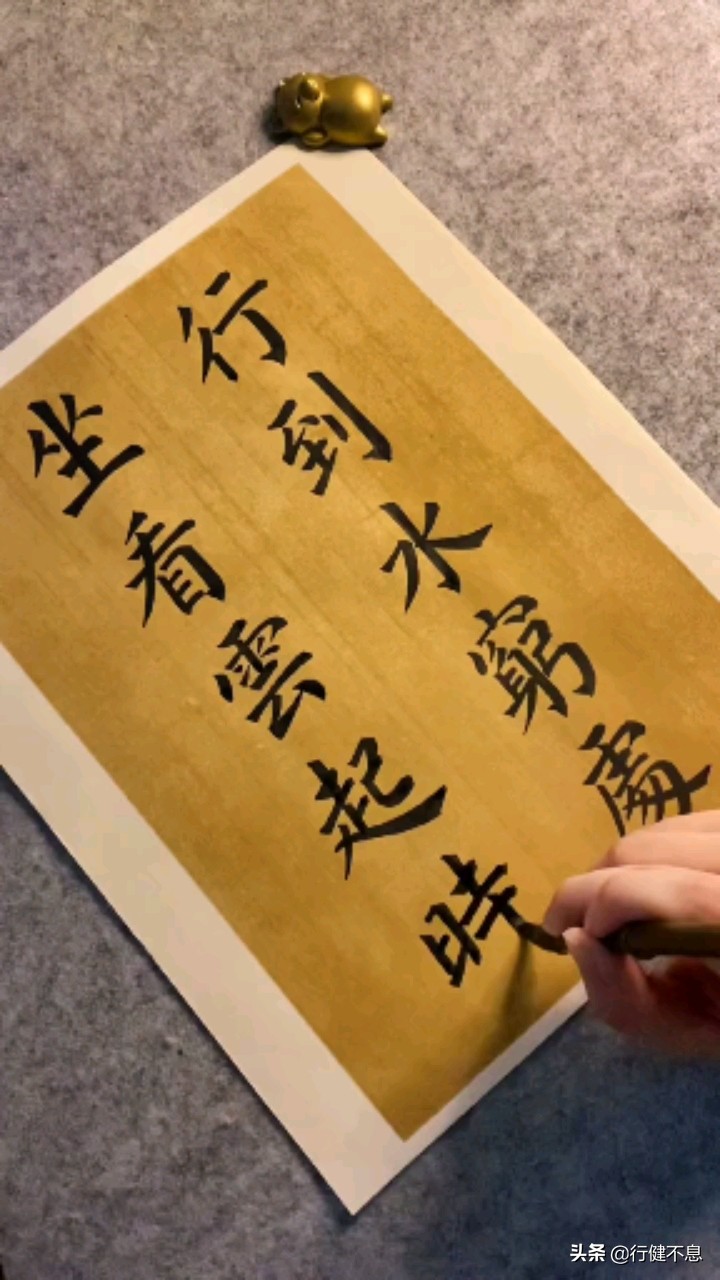 行到水窮處
坐看雲起時
头条 @行健不息